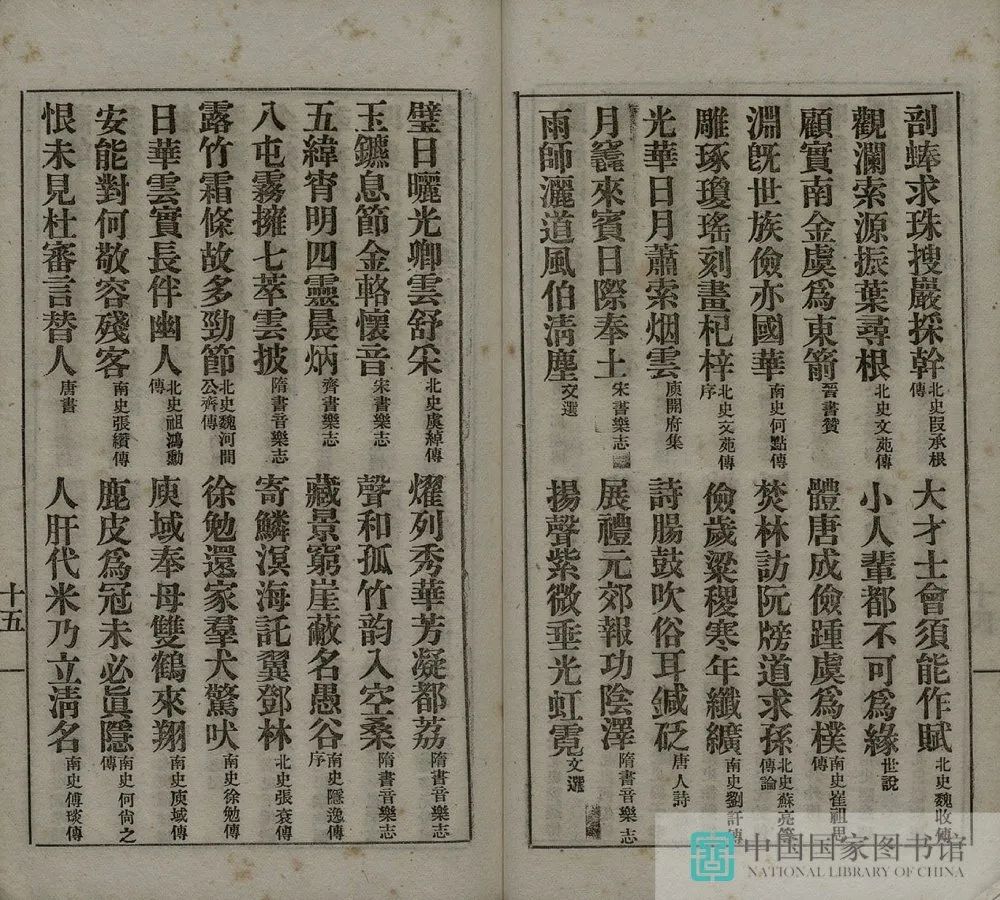 剖蜯求珠搜巖採幹北史叚承根傳 大才士會須能作賦北史魏收傳
觀瀾索源振葉尋根北史文苑傳 小人輩都不可爲緣世說
顧實南金虞爲東箭晉書贊 體唐成儉踵虞爲樸南史崔祖思傳
淵旣世族儉亦國華南史何點傳 焚林訪阮牓道求孫北史蘇亮等傳論
雕琢瓊瑤刻畫杞梓北史文苑傳序 儉歲粱稷寒年纖纊南史劉訏傳
光華日月蕭索烟雲庾開府集 詩腸鼓吹俗耳鍼砭唐人詩
月竁來賓日際奉土宋書樂志 展禮元郊報功陰澤隋書音樂志
雨師灑道風伯淸塵文選 揚聲紫微垂光虹霓文選
璧日曬光卿雲舒采北史虞綽傳 燿列秀華芳凝都荔隋書音樂志
玉鑣息節金輅懷音宋書樂志 聲和孤竹韵入空桑隋書音樂志
五緯宵明四靈晨炳齊書樂志 藏景窮崖蔽名愚谷南史隱逸傳序
八屯霧擁七萃雲披隋書音樂志 寄鱗溟海託翼鄧林北史張袞傳
露竹霜條故多勁節北史魏河間公齊傳 徐勉還家羣犬驚吠南史徐勉傳
日華雲實長伴幽人北史祖鴻勳傳 庾域奉母雙鶴來翔南史庾域傳
安能對何敬容殘客南史張纘傳 鹿皮爲冠未必眞隱南史何尙之傳
恨未見杜審言替人唐書 人肝代米乃立淸名南史傅琰傳
十五
中国国家图书馆
NATIONAL LIBRARY OF CHINA